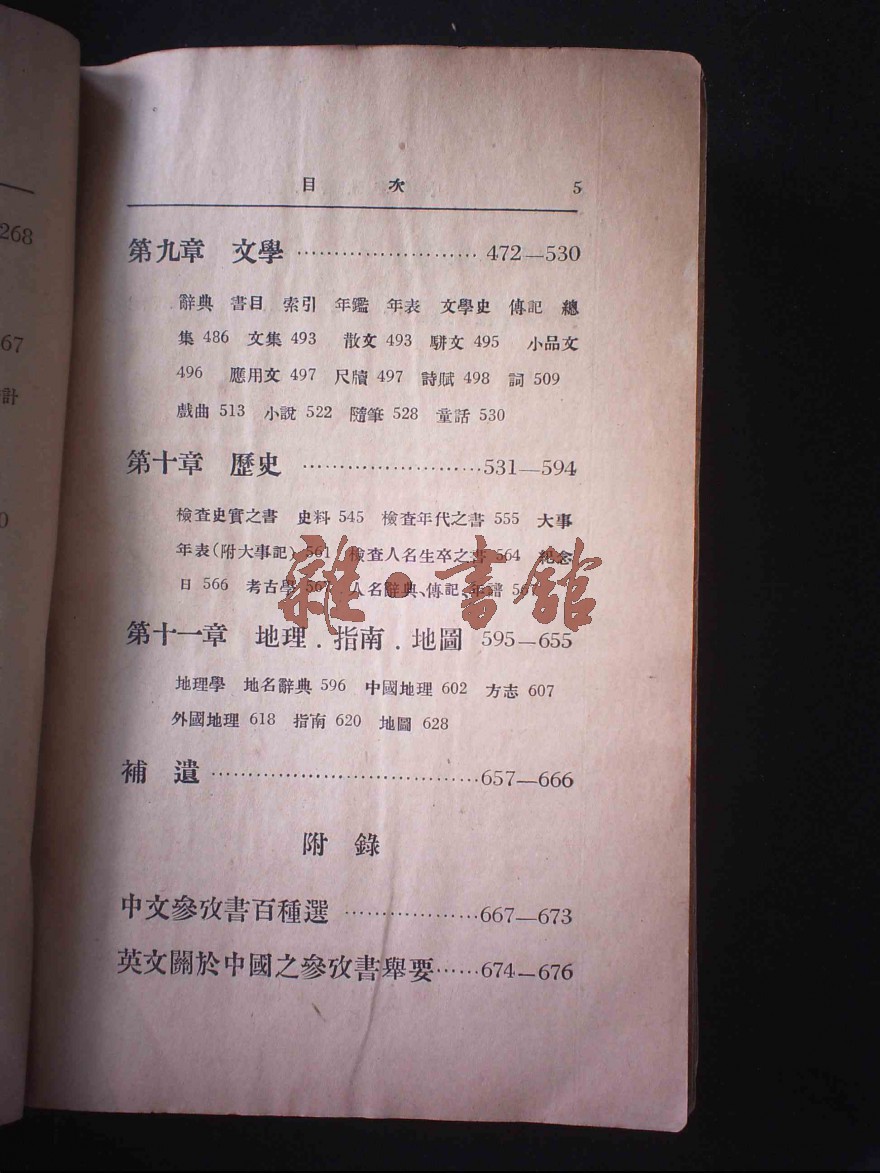 目 次 5
第九章 文學 ························ 472—530
辭典 書目 索引 年鑑 年表 文學史 傳記 總
集 486 文集 493 散文 493 駢文 495 小品文
496 應用文 497 尺牘 497 詩賦 498 詞 509
戲曲 513 小說 522 隨筆 528 童話 530
第十章 歷史 ························531—594
檢查史實之書 史料 545 檢查年代之書 555 大事
年表(附大事記) 561 檢查人名生卒之書 564 紀念
日 566 考古學 567 人名辭典、傳記、年譜
第十一章 地理．指南．地圖 595—655
地理學 地名辭典 596 中國地理 602 方志 607
外國地理 618 指南 620 地圖 628
補 遺 ····································657—666
附 錄
中文參攷書百種選 ··················667—673
英文關於中國之參攷書舉要······674—676
雜·書館
268
67
計
0